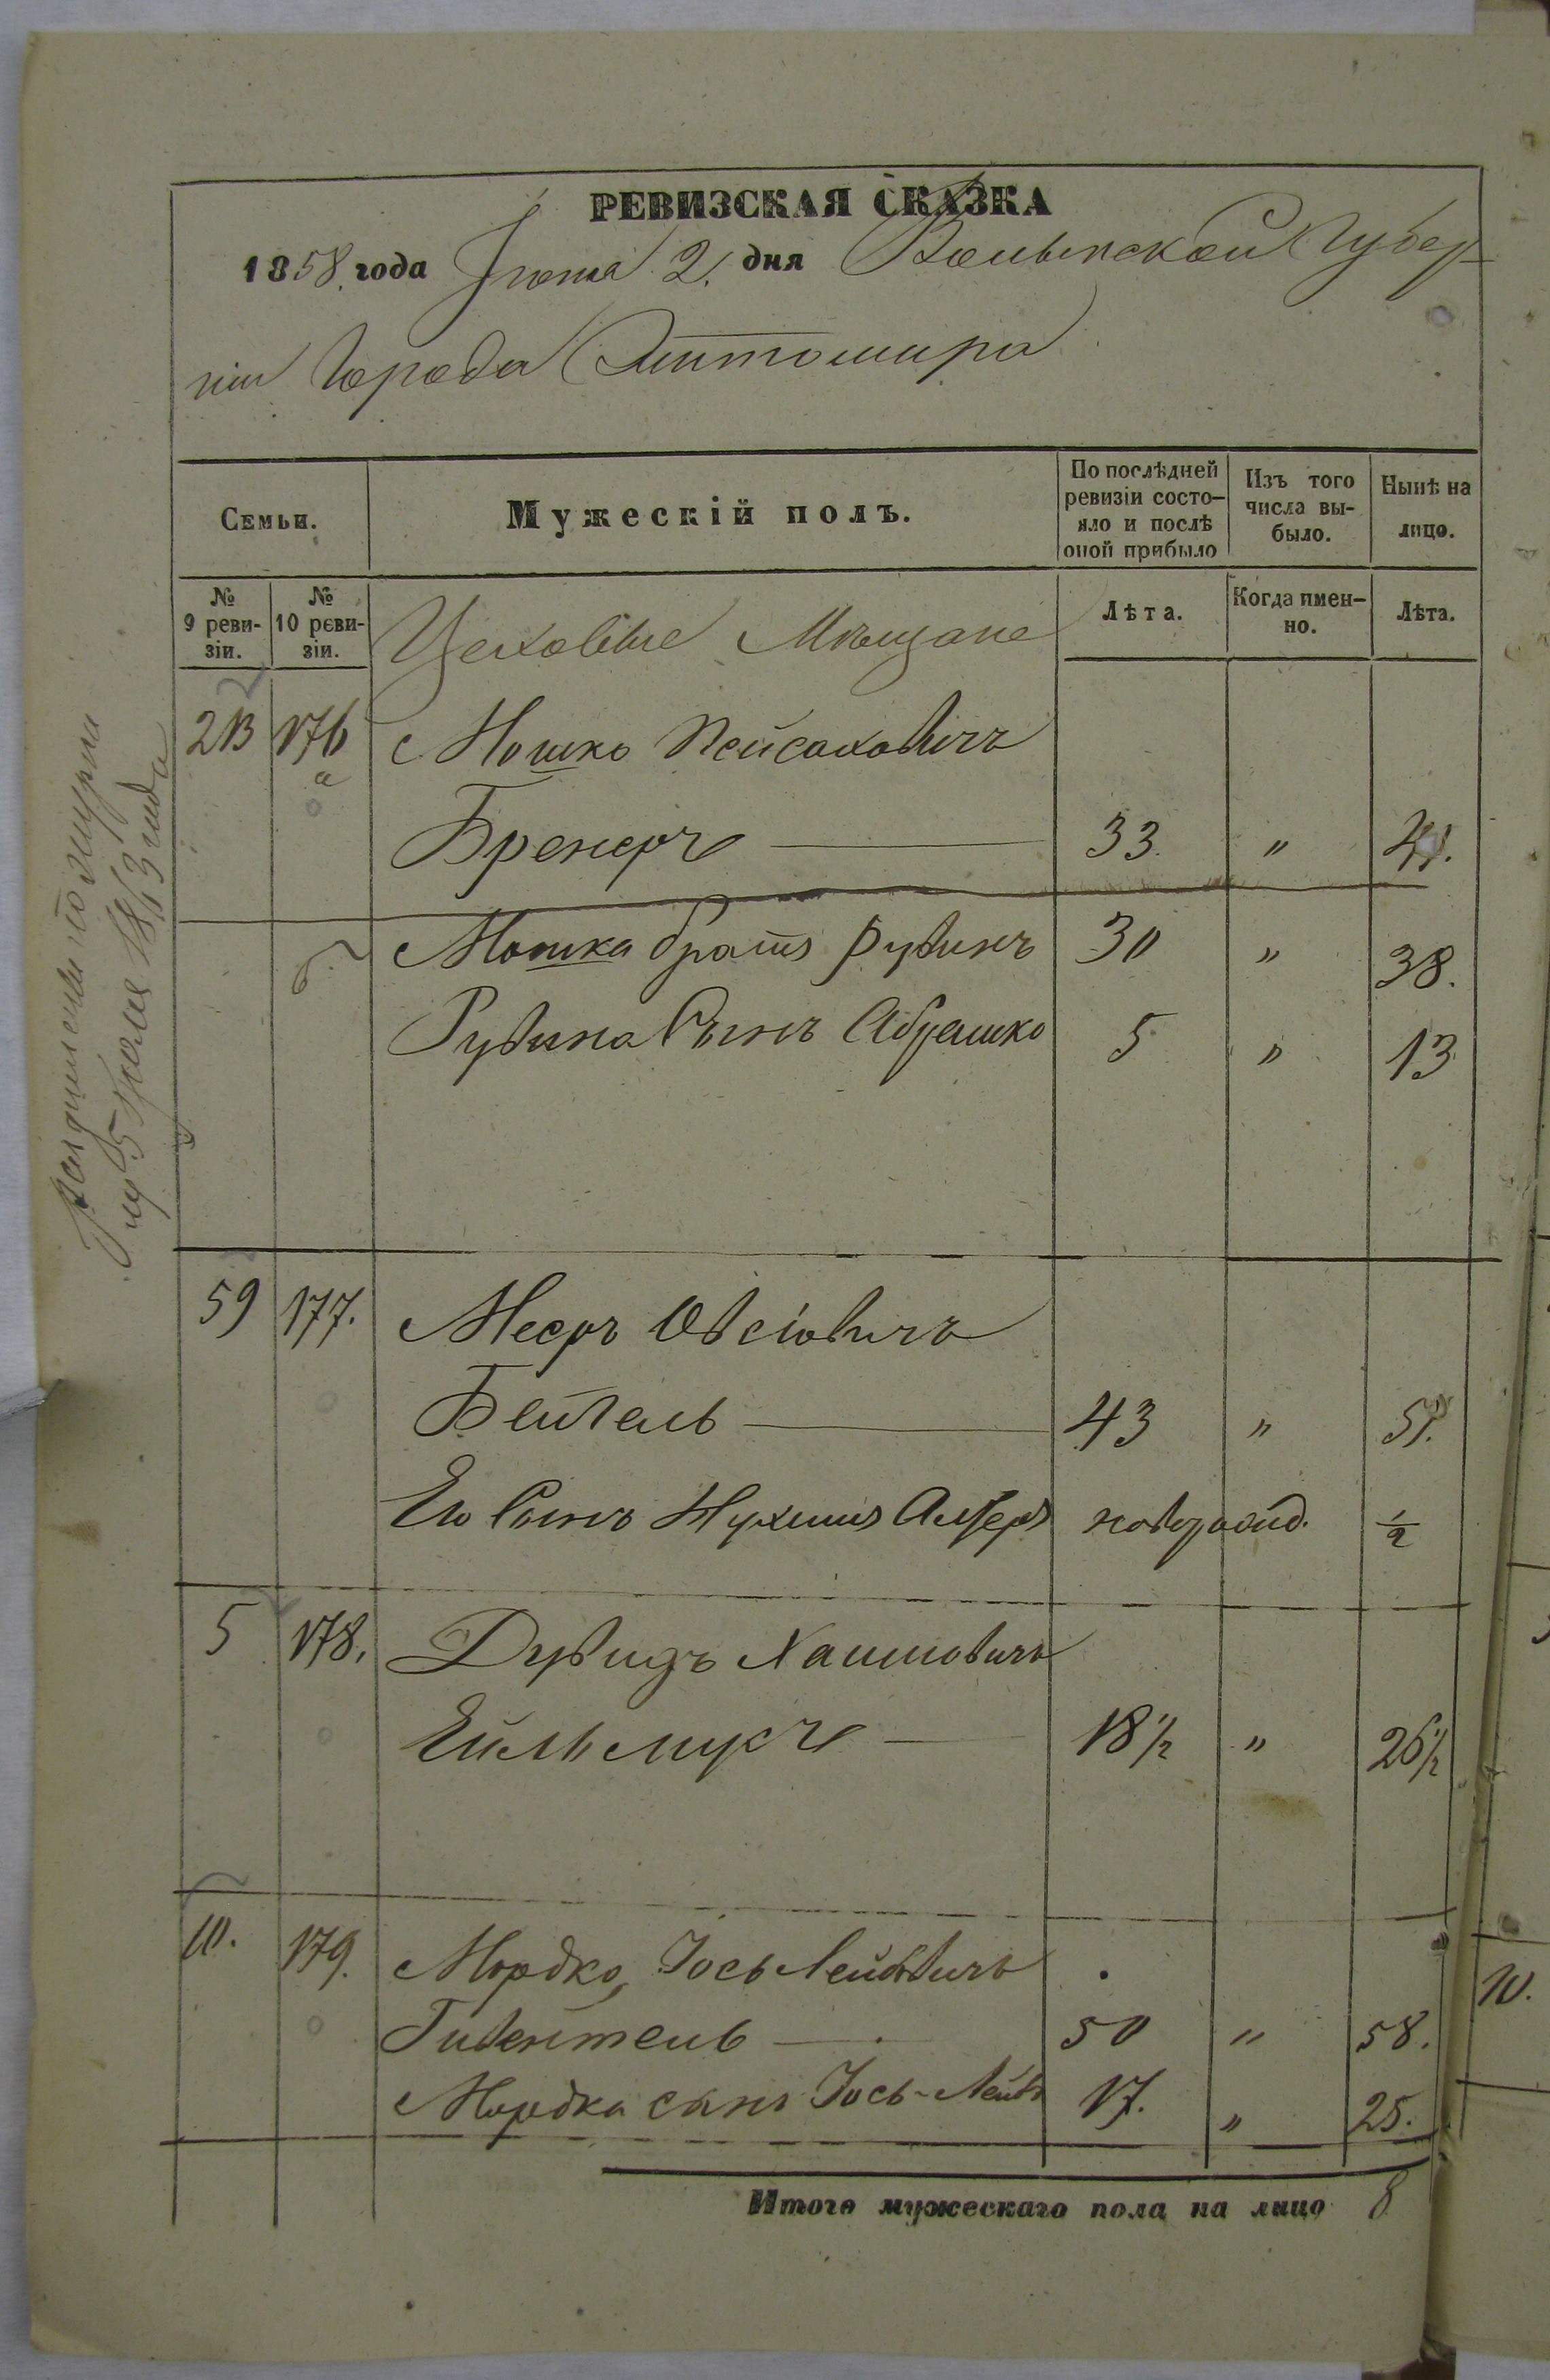 РЕВИЗСКАЯ СКАЗКА
1858. года Іюня 2. дня Волынской Губер-
ніи Города Житомира
Семьи.
Мужескій полъ.
По послѣдней ревизіи состо-яло и послѣ оной прибыло
Изъ того числа вы-было.
Нынѣ на лицо.
№ 9 реви-зіи.
№ 10 реви-зіи.
Цеховые Мѣщане
Лѣта.
Когда имен-но.
Лѣта.
213 176 Мошко Пейсаховичъ
а
Бренеръ 33. " 41.
б. Мошка братъ Рувинъ 30 " 38.
Рувина Сынъ Абрамко 5 " 13
59 177. Мееръ Овсіовичъ
Бейгель 43 " 51.
Его Сынъ Нухимъ Алтеръ новорожд. 1/2
5 178. Дувидъ Хаимовичъ
18 1/2 " 26 1/2
10. 179. Мордко, Іось Лейбовичъ
50 " 58.
Мордка сынъ Іось-Лейб 17. " 25.
Итого мужескаго пола на лицо 8
по журналу
5 1863 года
10.